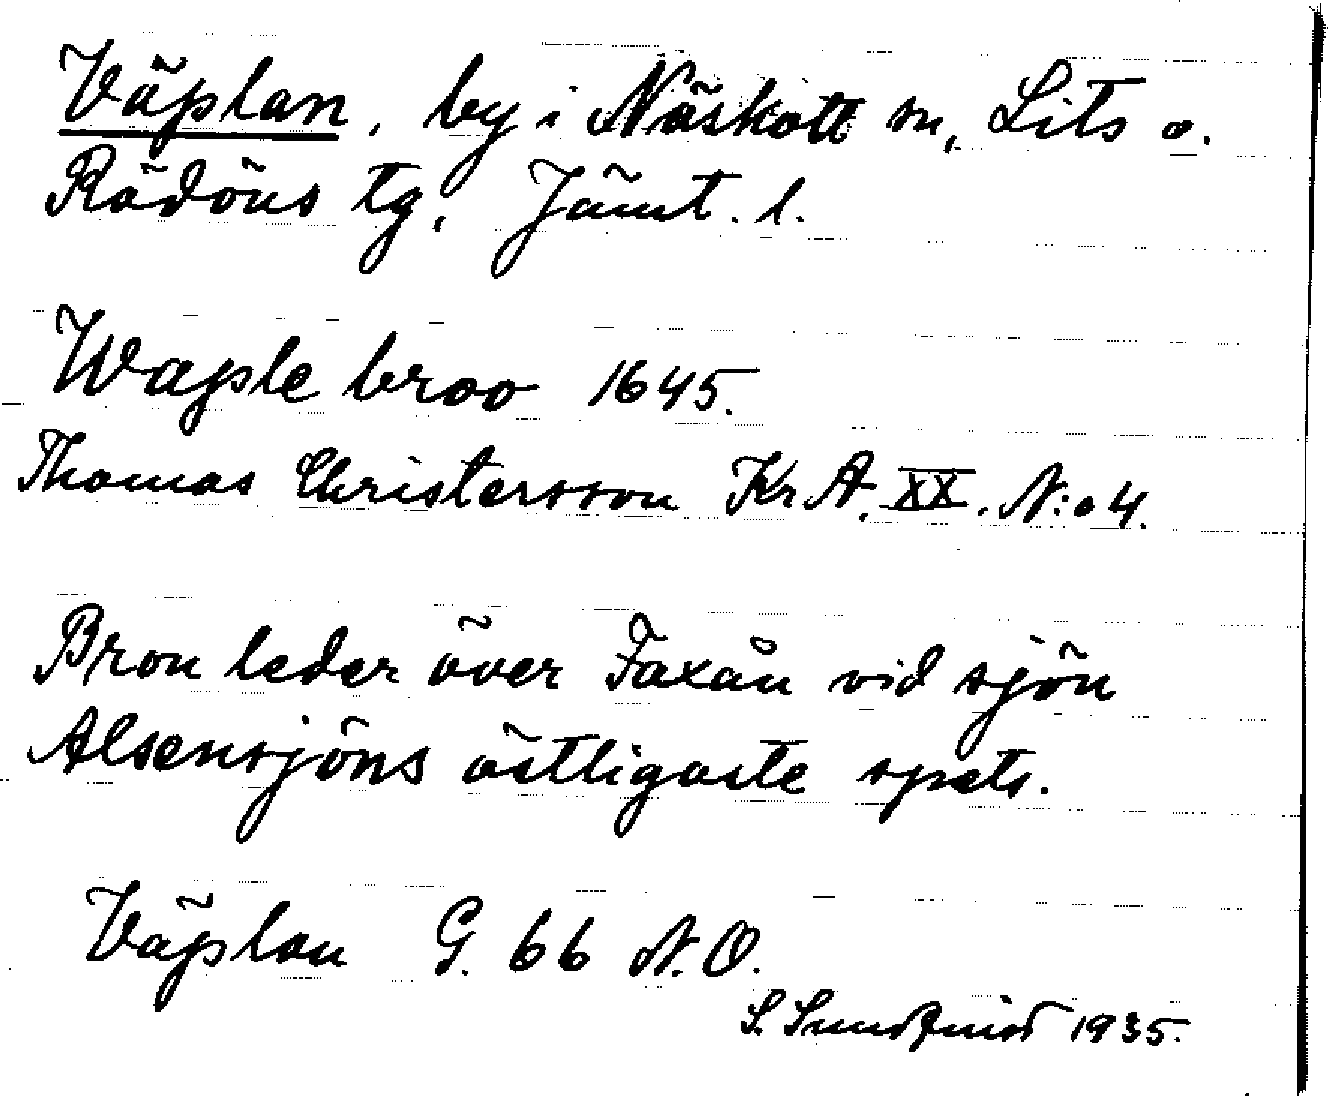 Väplan, by i Näskott sn, Lits o.
Rödöns tg, Jämt. l.
Waple broo 1645.
Thomas Christersson Kr A. XX. N:o 4.
Bron leder över Faxån vid sjön
Alsensjöns östligaste spets.
Väplan G. 66 N.O.
S. Sundqvist 1935.